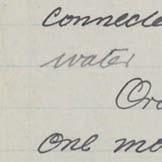 connecte
water
Or
one mo